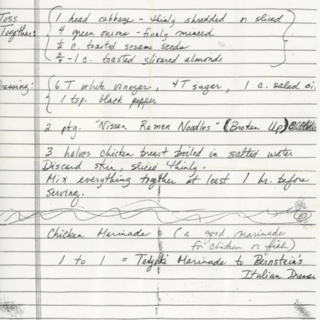 Toss Together: 1 head cabbage - thinly shredded or sliced
4 green onions - finely minced
½ c. toasted sesame seeds
¾ - 1 c. toasted slivered almonds
Dressing: 6 T white vinegar, 4 T sugar, 1 c. salad oil
1 tsp. black pepper
2 pkg. "Nissen Ramen Noodles" (Broken Up)
3 halves chicken breast boiled in salted water
Discard skin, sliced thinly.
Mix everything together at least 1 hr. before
serving.
Chicken Marinade : (a good marinade
for chicken or fish)
1 to 1 = Teriyaki Marinade to Bernstein's
Italian Dress